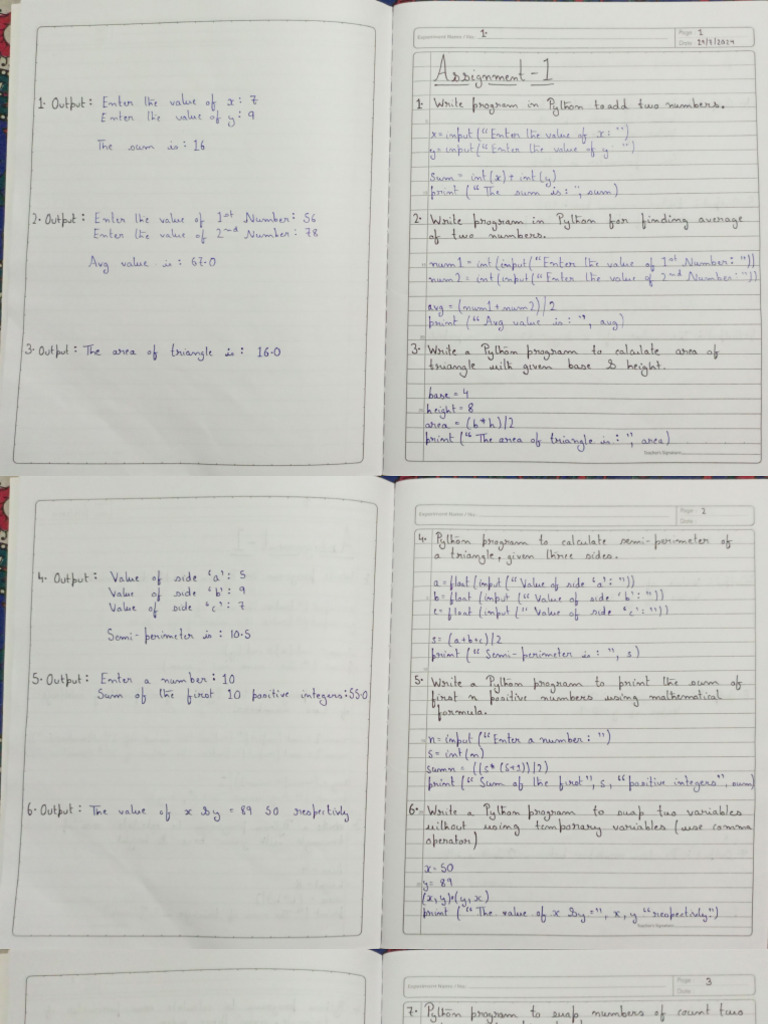 1. Output: Enter the value of x: 7
Enter the value of y: 9
The sum is: 16
2. Output: Enter the value of 1st Number: 56
Enter the value of 2nd Number: 78
Avg value is: 67.0
3. Output: The area of triangle is: 16.0
Experiment Name / No. 1.
Page: 1
Date:
Assignment-1
1. Write program in Python to add two numbers.
x=input("Enter the value of x: ")
y=input("Enter the value of y: ")
sum= int(x)+int(y)
print("The sum is:", sum)
2. Write program in Python for finding average
of two numbers.
num1=int(input("Enter the value of 1st Number: "))
num2=int(input("Enter the value of 2nd Number:"))
avg=(num1+num2)/2
print("Avg value is:", avg)
3. Write a Python program to calculate area of
triangle with given base & height.
base=4
height=8
area=(b*h)/2
print("The area of triangle is:", area)
Teacher's Signature:
4. Output: Value of side 'a': 5
Value of side 'b': 9
Value of side 'c': 7
Semi-perimeter is: 10.5
5. Output: Enter a number: 10
Sum of the first 10 positive integers:55.0
6. Output: The value of x &y = 89 50 respectivly
Experiment Name / No.
Page: 2
Date:
4. Python program to calculate semi-perimeter of
a triangle, given three sides.
a=float(input("Value of side 'a':"))
b=float(input("Value of side 'b':"))
c=float(input("Value of side 'c':"))
s=(a+b+c)/2
print("Semi-perimeter is:", s)
5. Write a Python program to print the sum of
first n positive numbers using mathematical
formula.
n=input("Enter a number: ")
s=int(n)
sumn = ((s*(s+1))/2)
print("Sum of the first", s, "positive integers", sum)
6. Write a Python program to swap two variables
without using temporary variables (use comma
operator)
x=50
y=89
(x,y)=(y,x)
print("The value of x &y=", x, y "respectivly")
Teacher's Signature:
Experiment Name / No.
Page: 3
Date:
7. Python program to swap numbers of count two